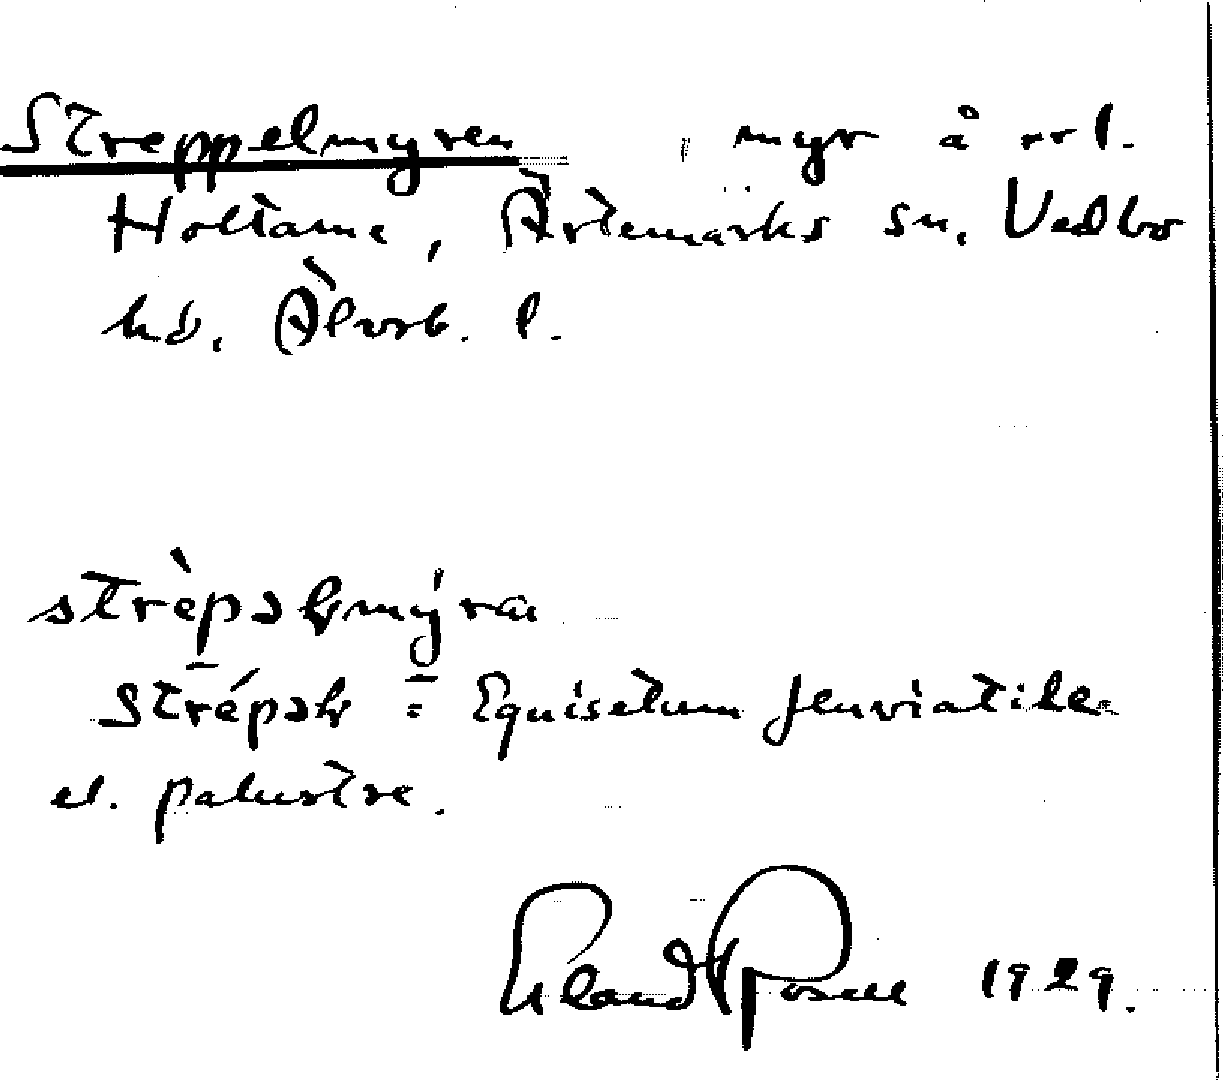 Streppelmyren, myr å rrl.
Holtane, Ärtemarks sn, Vedbo
hd, Älvsb. l.
strèpəɫmýra
Strépəɫ = Equisetum fluviatile
el. palustre.
Erland Rosell 1929.